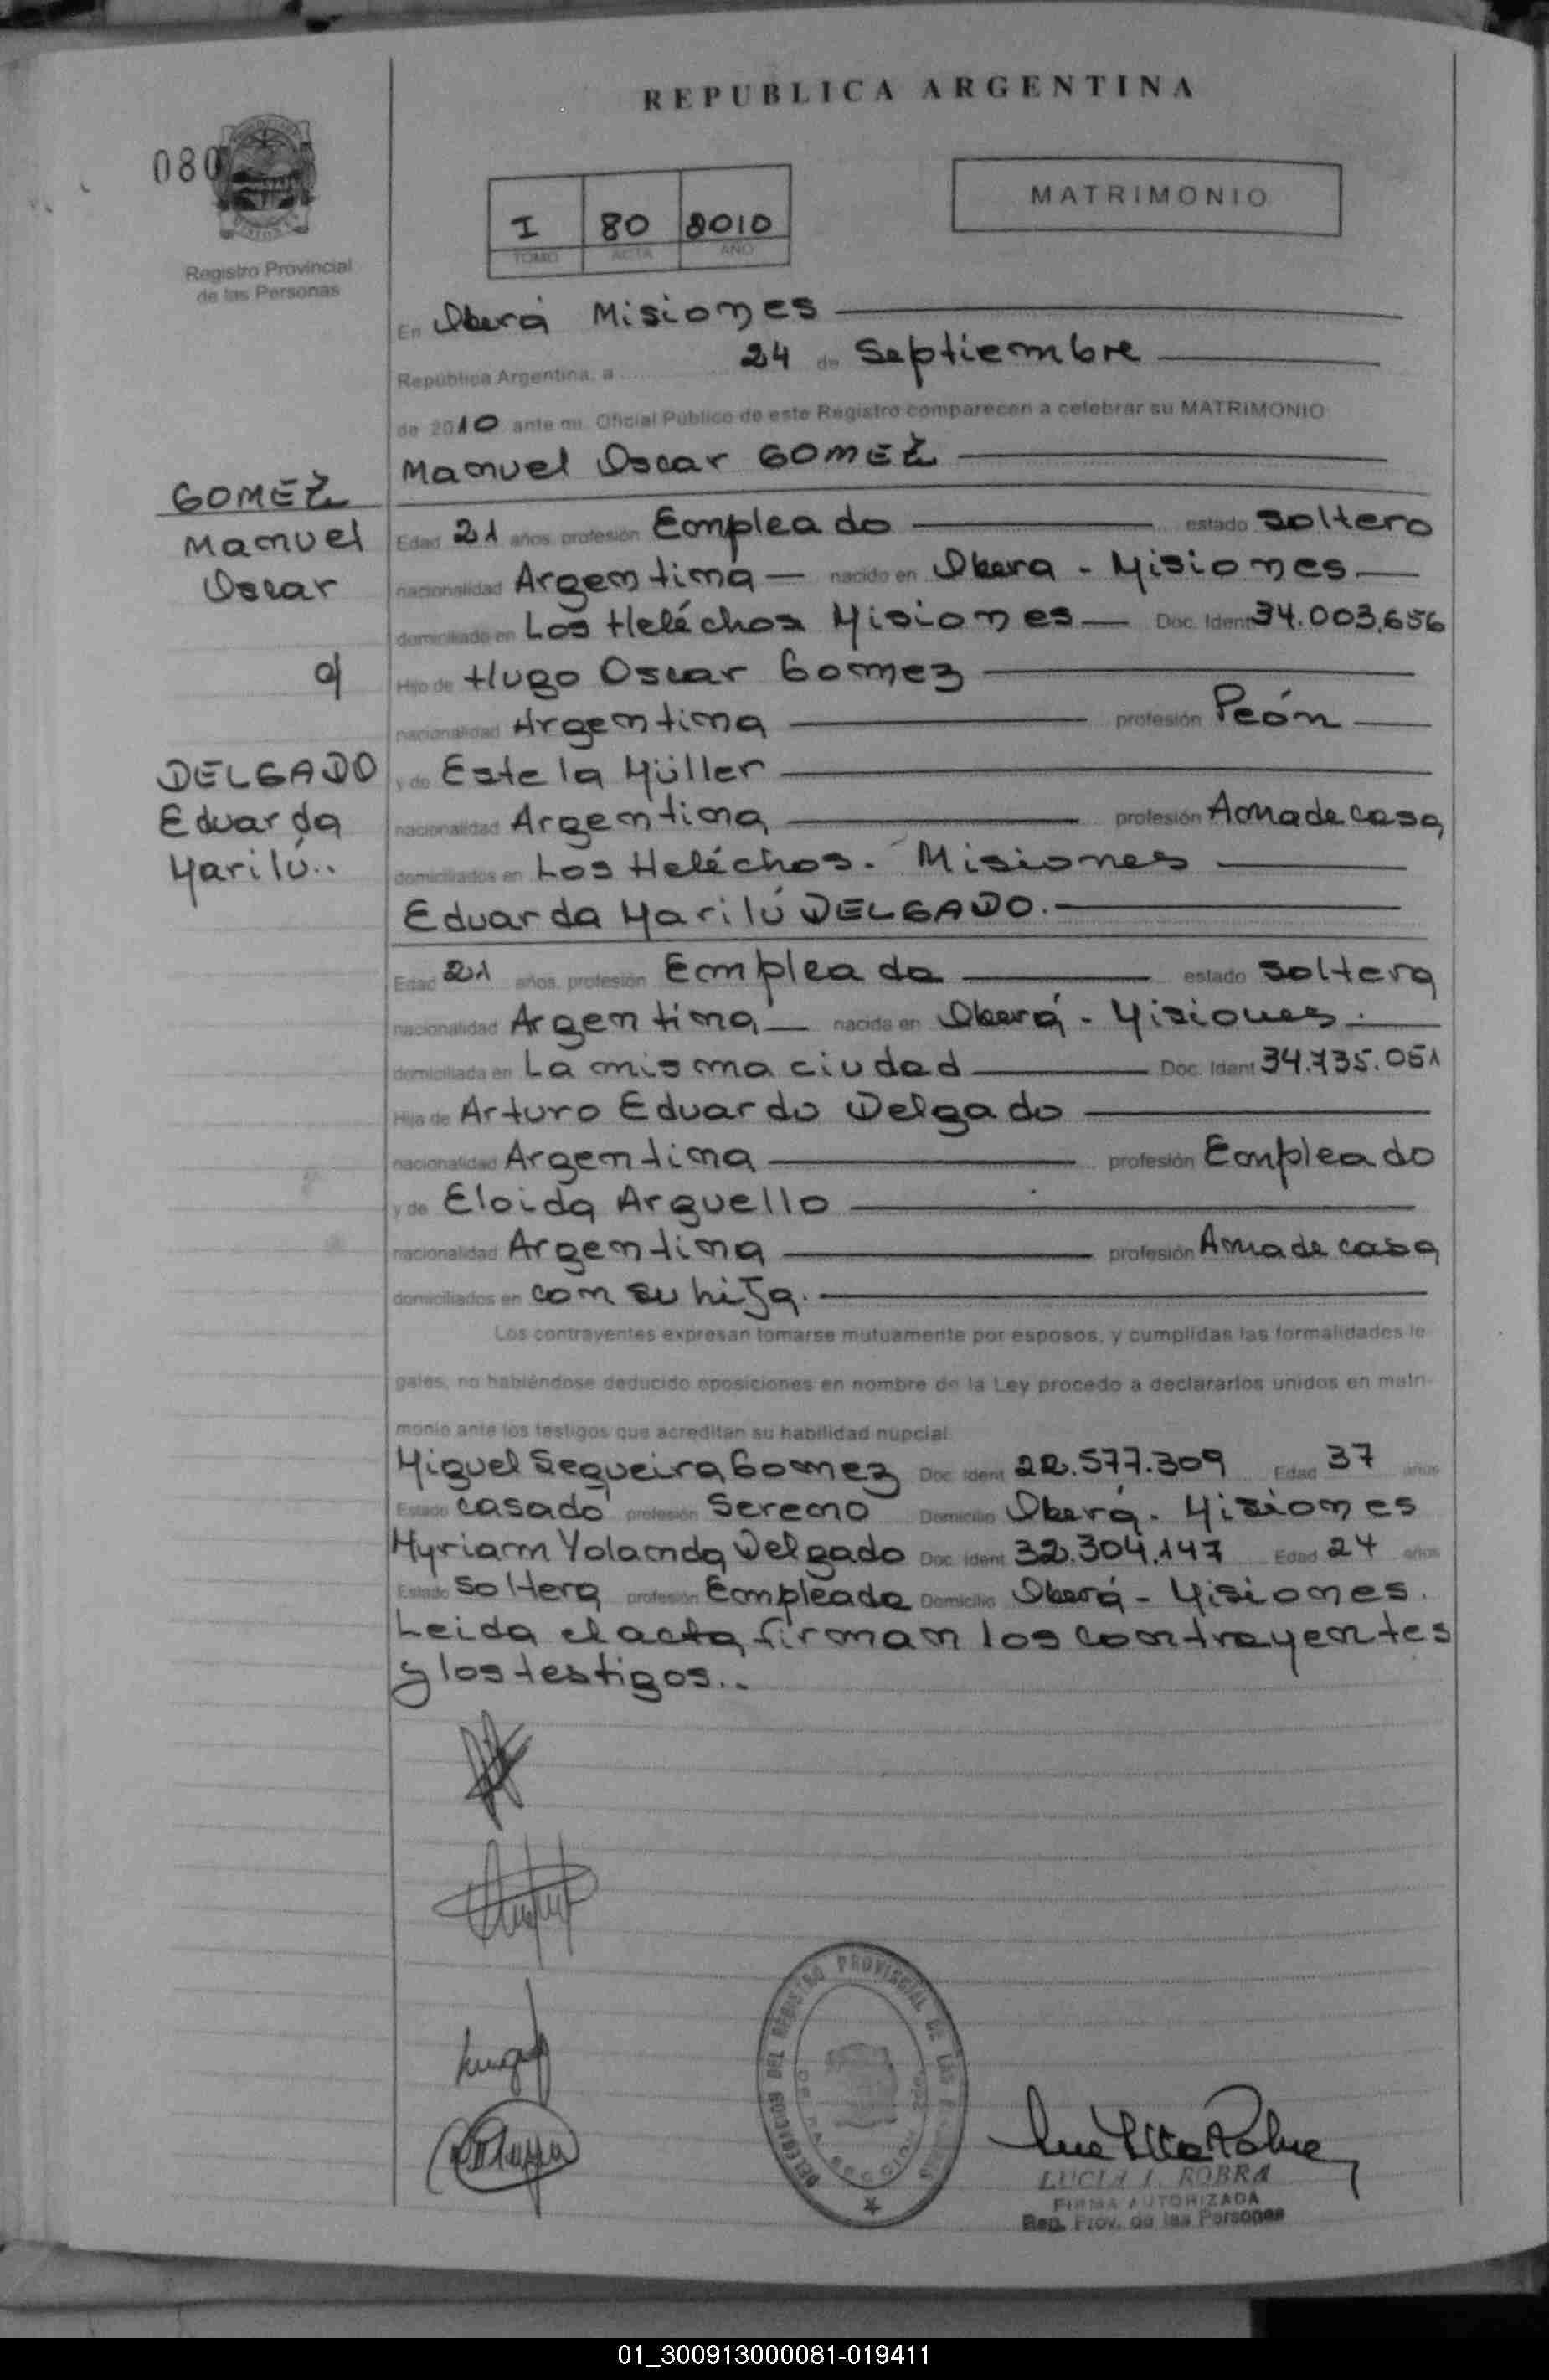 REPUBLICA ARGENTINA
080
MATRIMONIO
I 80 2010
TOMO ACTA AÑO
Registro Provincial
de las Personas
En Oberá Misiones
República Argentina, a 24 de Septiembre
de 2010 ante mi, Oficial Público de este Registro comparecen a celebrar su MATRIMONIO
Manuel Oscar GOMEZ
GOMEZ
Manuel
Oscar
c/
DELGADO
Eduarda
Marilú..
Edad 21 años, profesión Empleado estado soltero
nacionalidad Argentina nacido en Obera - Misiones
domiciliado en Los Heléchos Misiones Doc. Ident 34.003.656
Hijo de Hugo Oscar Gomez
nacionalidad Argentina profesión Peón
y de Estela Müller
nacionalidad Argentina profesión Ama de casa
domiciliados en Los Heléchos. Misiones
Eduarda Marilú DELGADO.
Edad 21 años, profesión Empleada estado soltera
nacionalidad Argentina nacida en Oberá - Misiones.
domiciliada en La misma ciudad Doc. Ident 34.735.051
Hija de Arturo Eduardo Delgado
nacionalidad Argentina profesión Empleado
y de Eloida Arguello
nacionalidad Argentina profesión Ama de casa
domiciliados en con su hija.
Los contrayentes expresan tomarse mutuamente por esposos, y cumplidas las formalidades le-
gales, no habiéndose deducido oposiciones en nombre de la Ley procedo a declararlos unidos en matri-
monio ante los testigos que acreditan su habilidad nupcial
Miguel Sequeira Gomez Doc. Ident 22.577.309 Edad 37 años
Estado casado profesión Sereno Domicilio Oberá. Misiones
Myriam Yolanda Delgado Doc. Ident 32.304.147 Edad 24 años
Estado soltera profesión Empleada Domicilio Oberá - Misiones.
Leida el acta, firman los contrayentes
y los testigos..
DELEGACION DEL REGISTRO PROVINCIAL DE LAS
LUCIA I. ROBRA
FIRMA AUTORIZADA
Reg. Prov. de las Personas
01_300913000081-019411